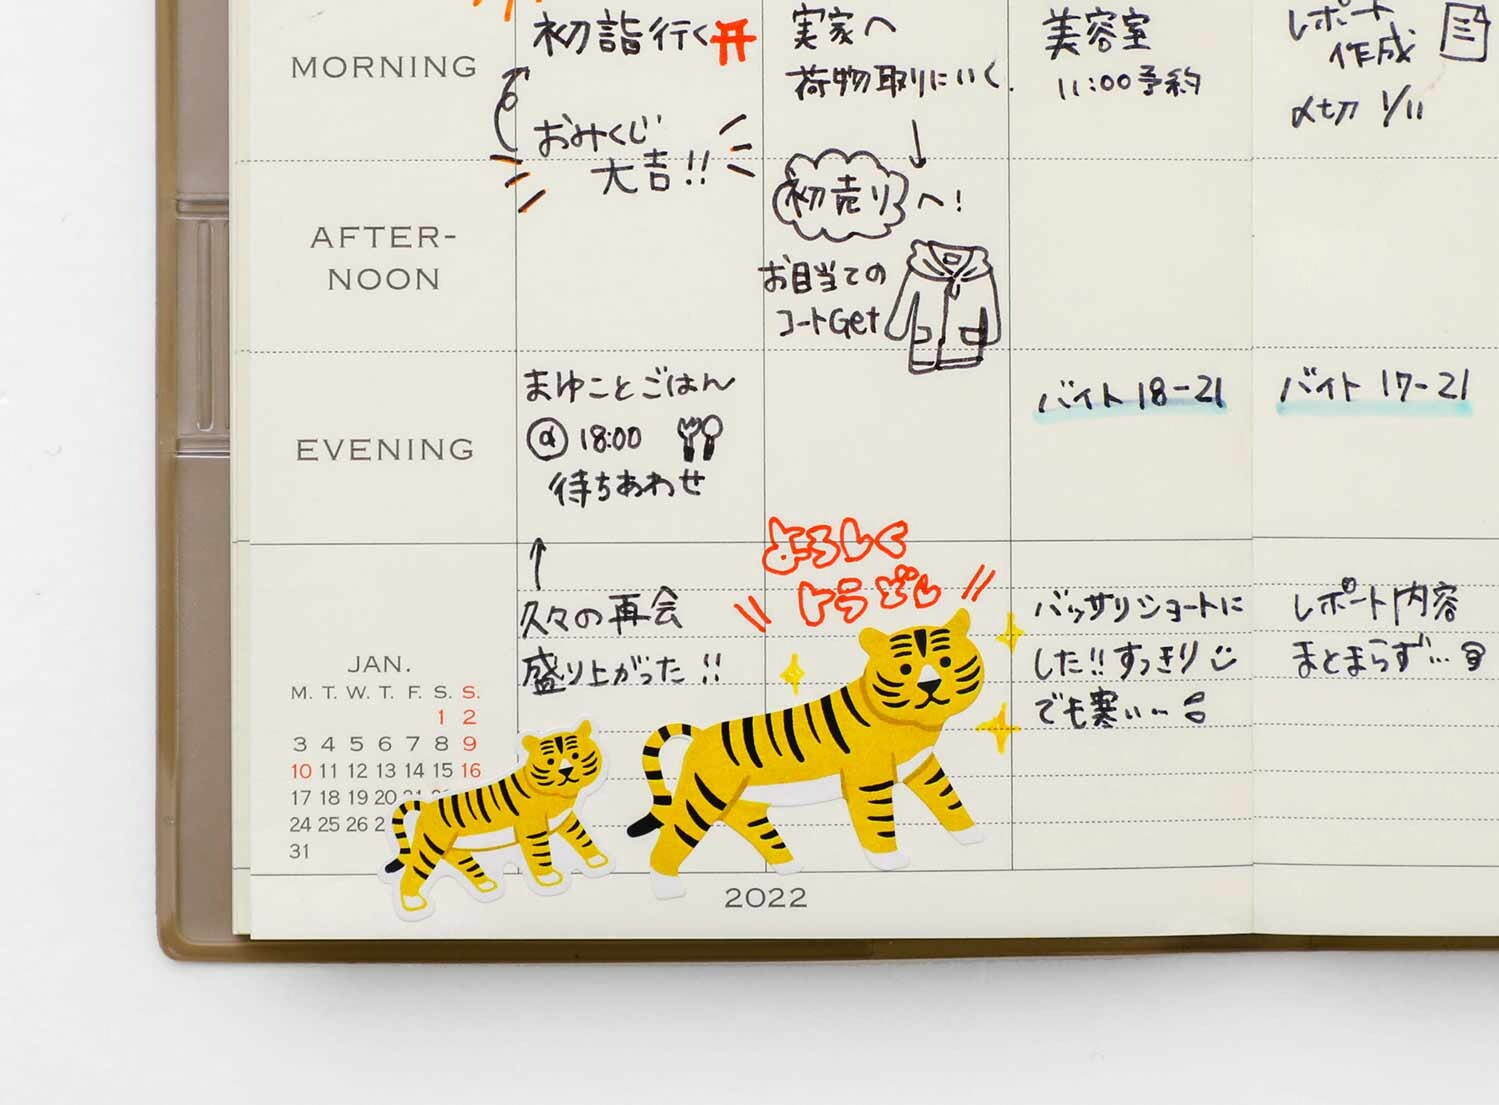 MORNING
初詣行く
おみくじ
大吉!!
実家へ
荷物取りにいく.
美容室
11:00予約
レポート
作成
〆切 1/11
AFTER-
NOON
初売りへ!
お目当ての
コートGet
EVENING
まゆことごはん
@ 18:00
待ちあわせ
バイト 18-21
バイト 17-21
久々の再会
盛り上がった!!
よろしく
トラどし
バッサリショートに
した!!すっきり
でも寒い〜
レポート内容
まとまらず…
JAN.
M. T. W. T. F. S. S.
1 2
3 4 5 6 7 8 9
10 11 12 13 14 15 16
17 18 19 20
24 25 26
31
2022